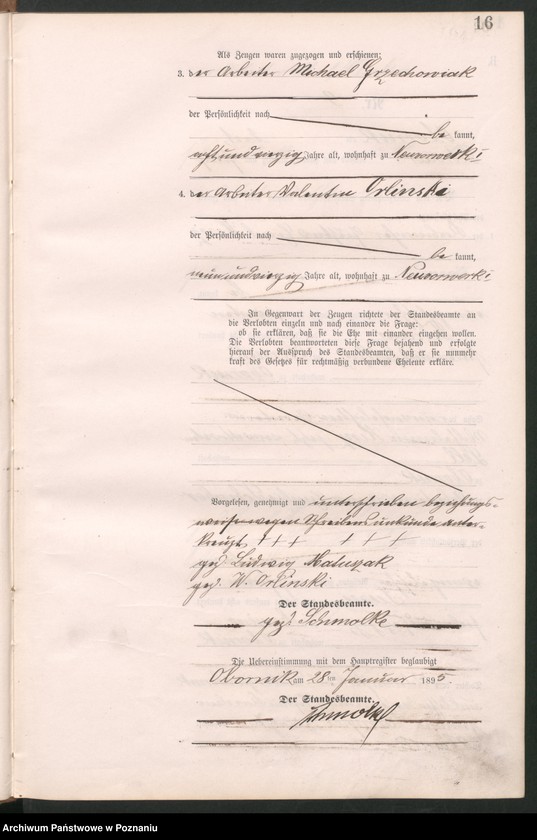 16
Als Zeugen waren zugezogen und erschienen:
3. der Arbeiter Michael Grzechowiak
der Persönlichkeit nach
be kannt,
acht und vierzig Jahre alt, wohnhaft zu Neuvorwerk
4. der Arbeiter Valentin Orlinski
der Persönlichkeit nach
be kannt,
neunundvierzig Jahre alt, wohnhaft zu Neuvorwerk
In Gegenwart der Zeugen richtete der Standesbeamte an
die Verlobten einzeln und nach einander die Frage:
ob sie erklären, daß sie die Ehe mit einander eingehen wollen.
Die Verlobten beantworteten diese Frage bejahend und erfolgte
hierauf der Ausspruch des Standesbeamten, daß er sie nunmehr
kraft des Gesetzes für rechtmäßig verbundene Eheleute erkläre.
Vorgelesen, genehmigt und unterschrieben beziehungs-
weise wegen Schreibensunkunde unter-
kreuzt + + + + + +
gez. Ludwig Matuszak
gez. W. Orlinski
Der Standesbeamte.
gez. Schmolke
Die Uebereinstimmung mit dem Hauptregister beglaubigt
Obornik am 28ten Januar 1895.
Der Standesbeamte.
Schmolke
Archiwum Państwowe w Poznaniu